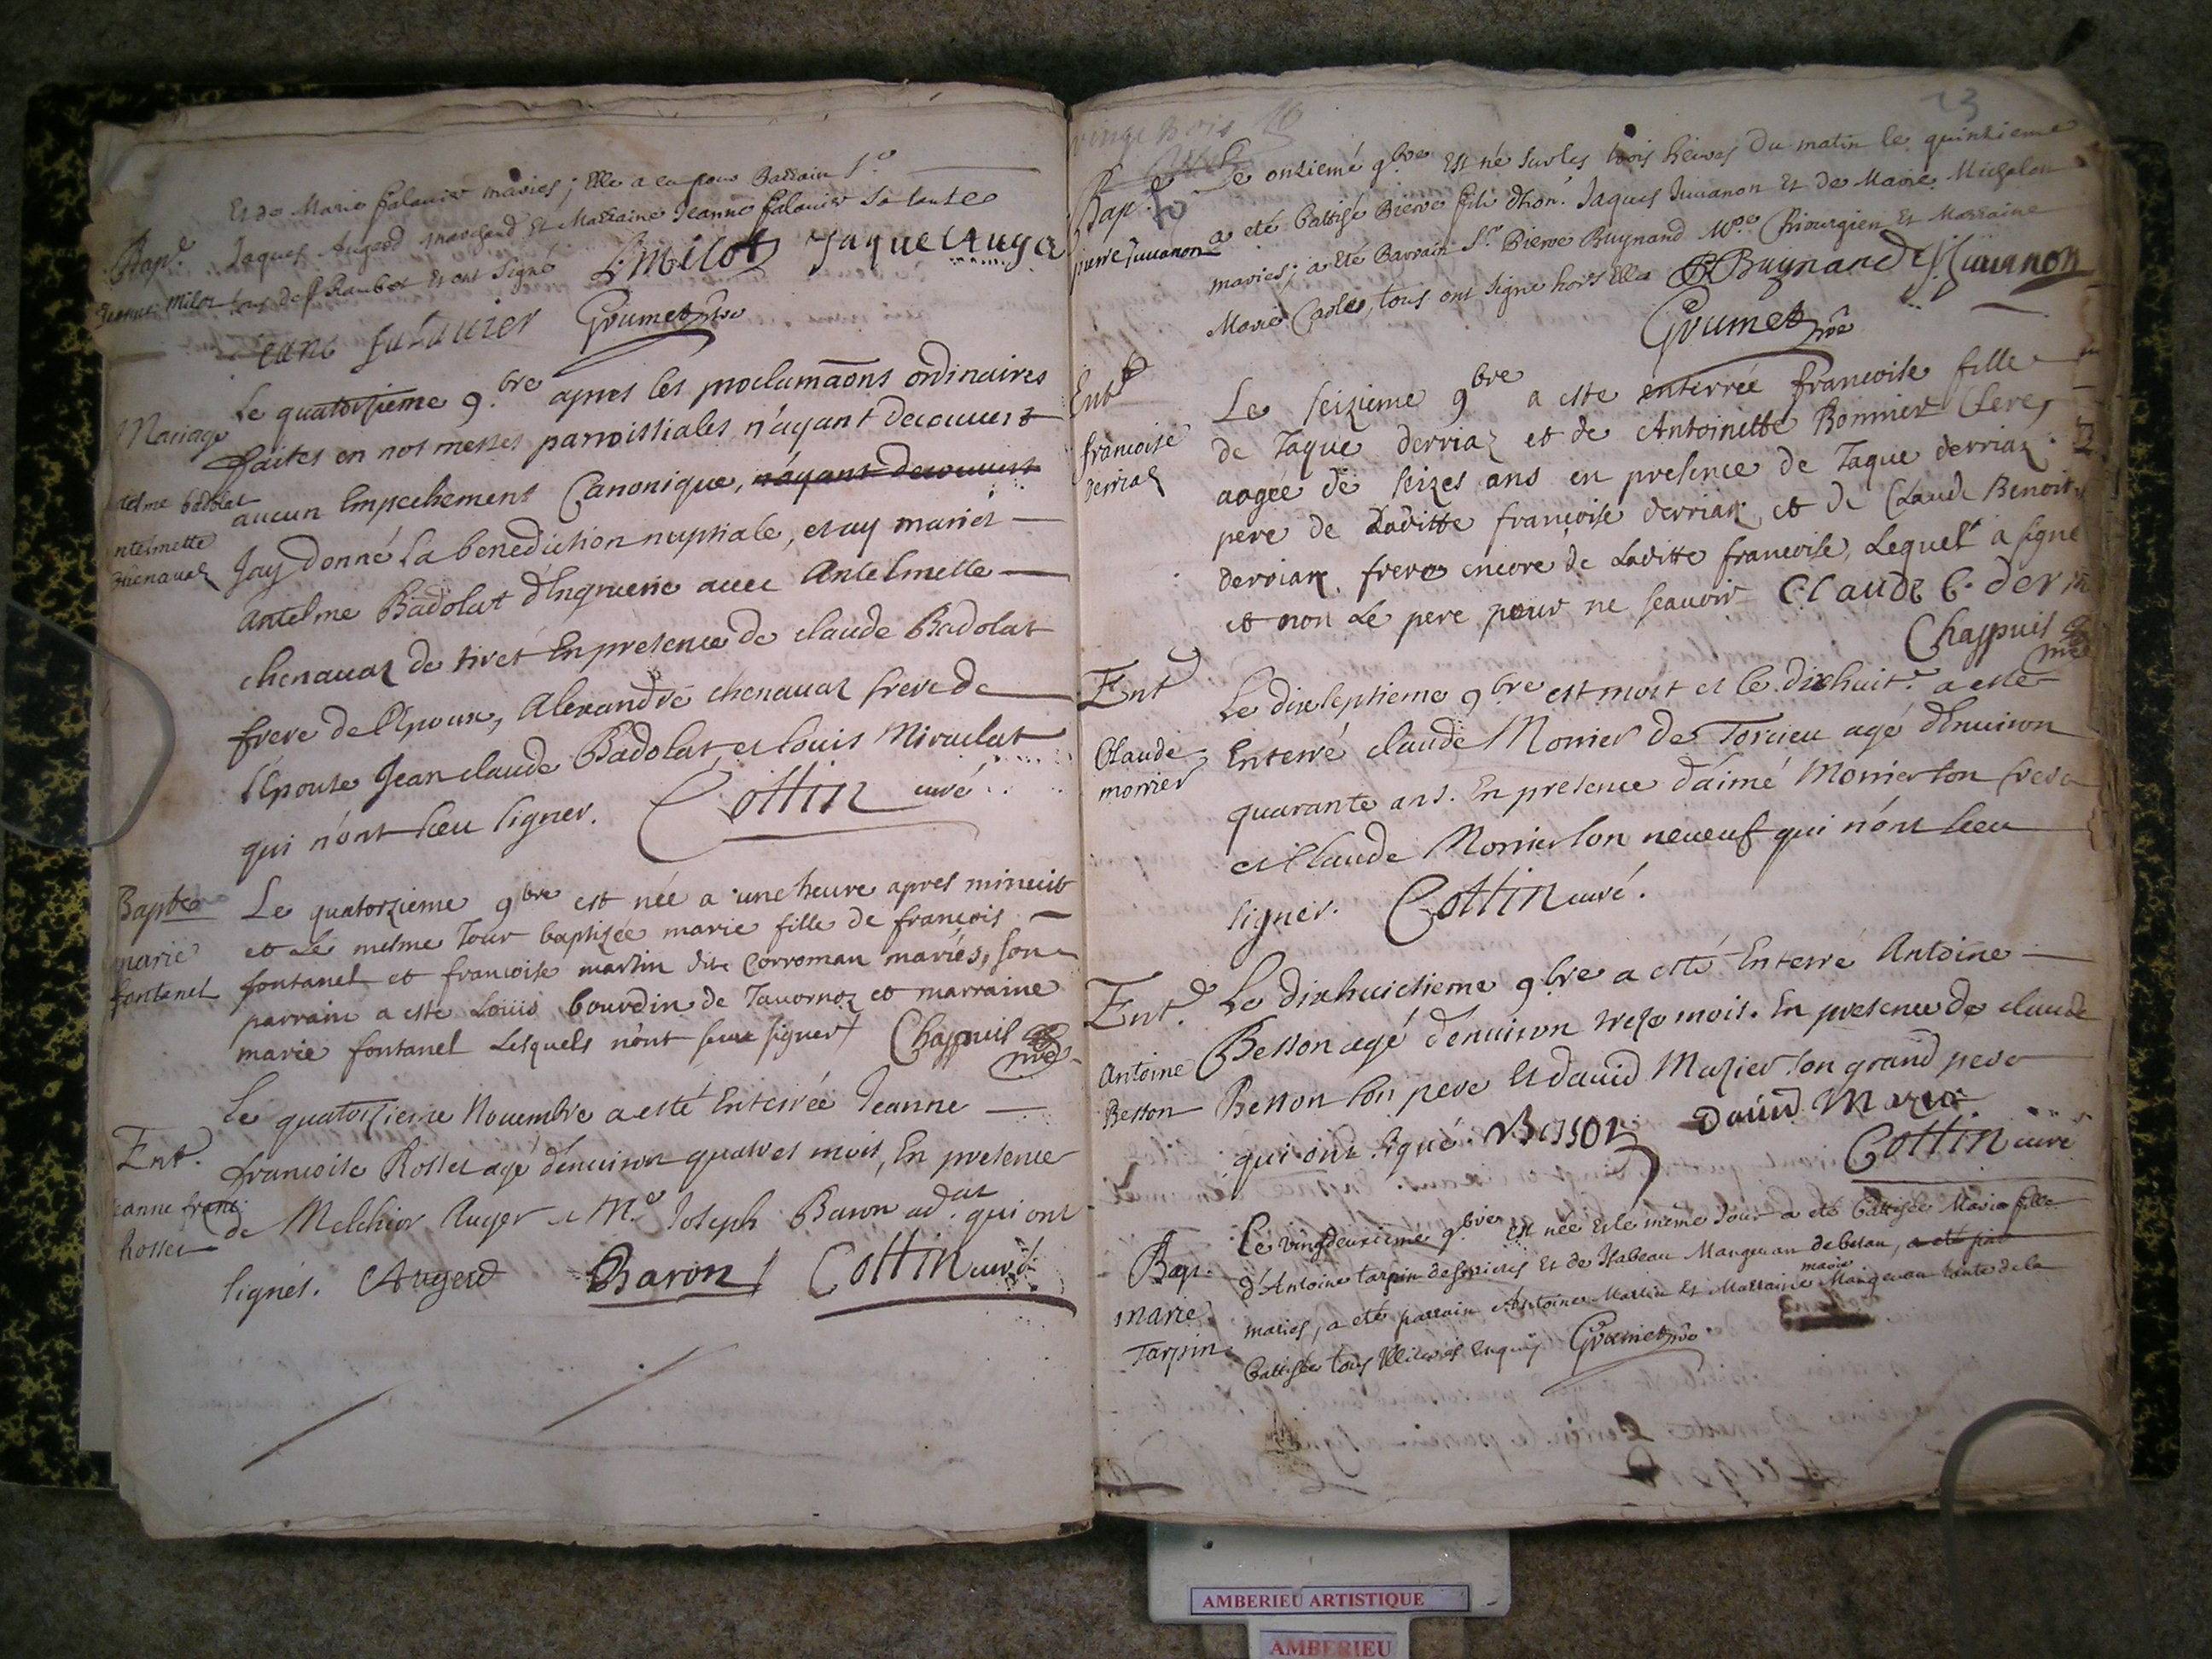 Et de Marie falavier mariés; Elle a eu pour Parrain Sr
Bap.e
Jaques Augerd marchand Et Marraine Jeanne falavier sa tante
Jeanne Milot
tous de St Rambert Et ont signé LMilot Jaque Auge
Jeane falavier Grumet
Mariage
Le quatorzieme 9.bre apres les proclamaõns ordinaires
faites en nos messes parroissiales n'ayant decouvert
aucun Empechement Canonique, n'ayant decouvert
Jay donné la benediction nuptiale, et ay mariés
antelme Badolat
antelmette
chenavaz
Antelme Badolat d'Ingrierie avec Antelmette
chenavaz de tiret En presence de claude Badolat
frere de l'Epoux, Alexandre chenavaz frere de
l'Epouse Jean claude Badolat, et louis Miraclat
qui n'ont sceu signer. Cottin curé
Bapte
Le quatorzieme 9bre est née a une heure apres minuit
et Le mesme Jour baptizée marie fille de françois
marie
fontanel
fontanel et francoise martin dite Corroman mariés, son
parrain a este Loüis bourdin de Javornoz et marraine
marie fontanel Lesquels n'ont sceu signer Chappuis
Le quatorzieme Novembre a esté Enterrée Jeanne
Ent.
francoise Rosset agé denviron quatres mois, En presence
Jeanne franc
Rosset
de Melchior Auger et M.e Joseph Baron ad.cat qui ont
signés. Augerd Baron Cottin curé
23
vingt trois
Bap.e
Le onzieme 9bre Est né sur les trois heures du matin le quinzieme
pierre Juvanon
a eté battisé Pierre fils d'hon. Jaques Juvanon Et de Marie Michalon
mariés; a eté Parrain Sr Pierre Buynand M.e Chirurgien Et Marraine
Marie Carles, tous ont signe hors Elle PBuynand JJuvanon
Grumet
Ent
Le seizieme 9bre a este enterrée francoise fille
francoise
derriaz
de Jaque derriaz et de Antoinette Bonnier
aagée de seizes ans en presence de Jaque derriaz
pere de Laditte françoise derriaz et de Claude Benoit
derriaz frere encore de Laditte francoise, Lequel a signé
et non Le pere pour ne scavoir Claude b. derri
Chappuis
Ent
Le dixseptieme 9bre est mort et le dixhuit.e a esté
Claude
morrier
Enterré claude Morrier de Torcieu agé d'Environ
quarante ans. En presence d'aimé Morrier son frere
et Claude Morrier son neveuf qui n'ont sceu
signer. Cottin curé.
Ent.
Le dixhuictieme 9bre a esté Enterré Antoine
Antoine
Besson
Besson agé d'environ treze mois. En presence de claude
Besson son pere Et david Mazier son grand pere
qui ont signé. Besson David Mazier
Cottin curé
Bap.
Le vingtdeuxieme 9.bre Est née Et le même Jour a eté battisée Marie fille
marie
Tarpin
d'Antoine tarpin des Et de Isabeau Mangevan debetan, a eté par
mariés, a eté parrain Antoine Martin Et Marraine marie Mangevan tante de la
battisée tous Illiteres Enquis Grumet
AMBERIEU ARTISTIQUE
AMBERIEU